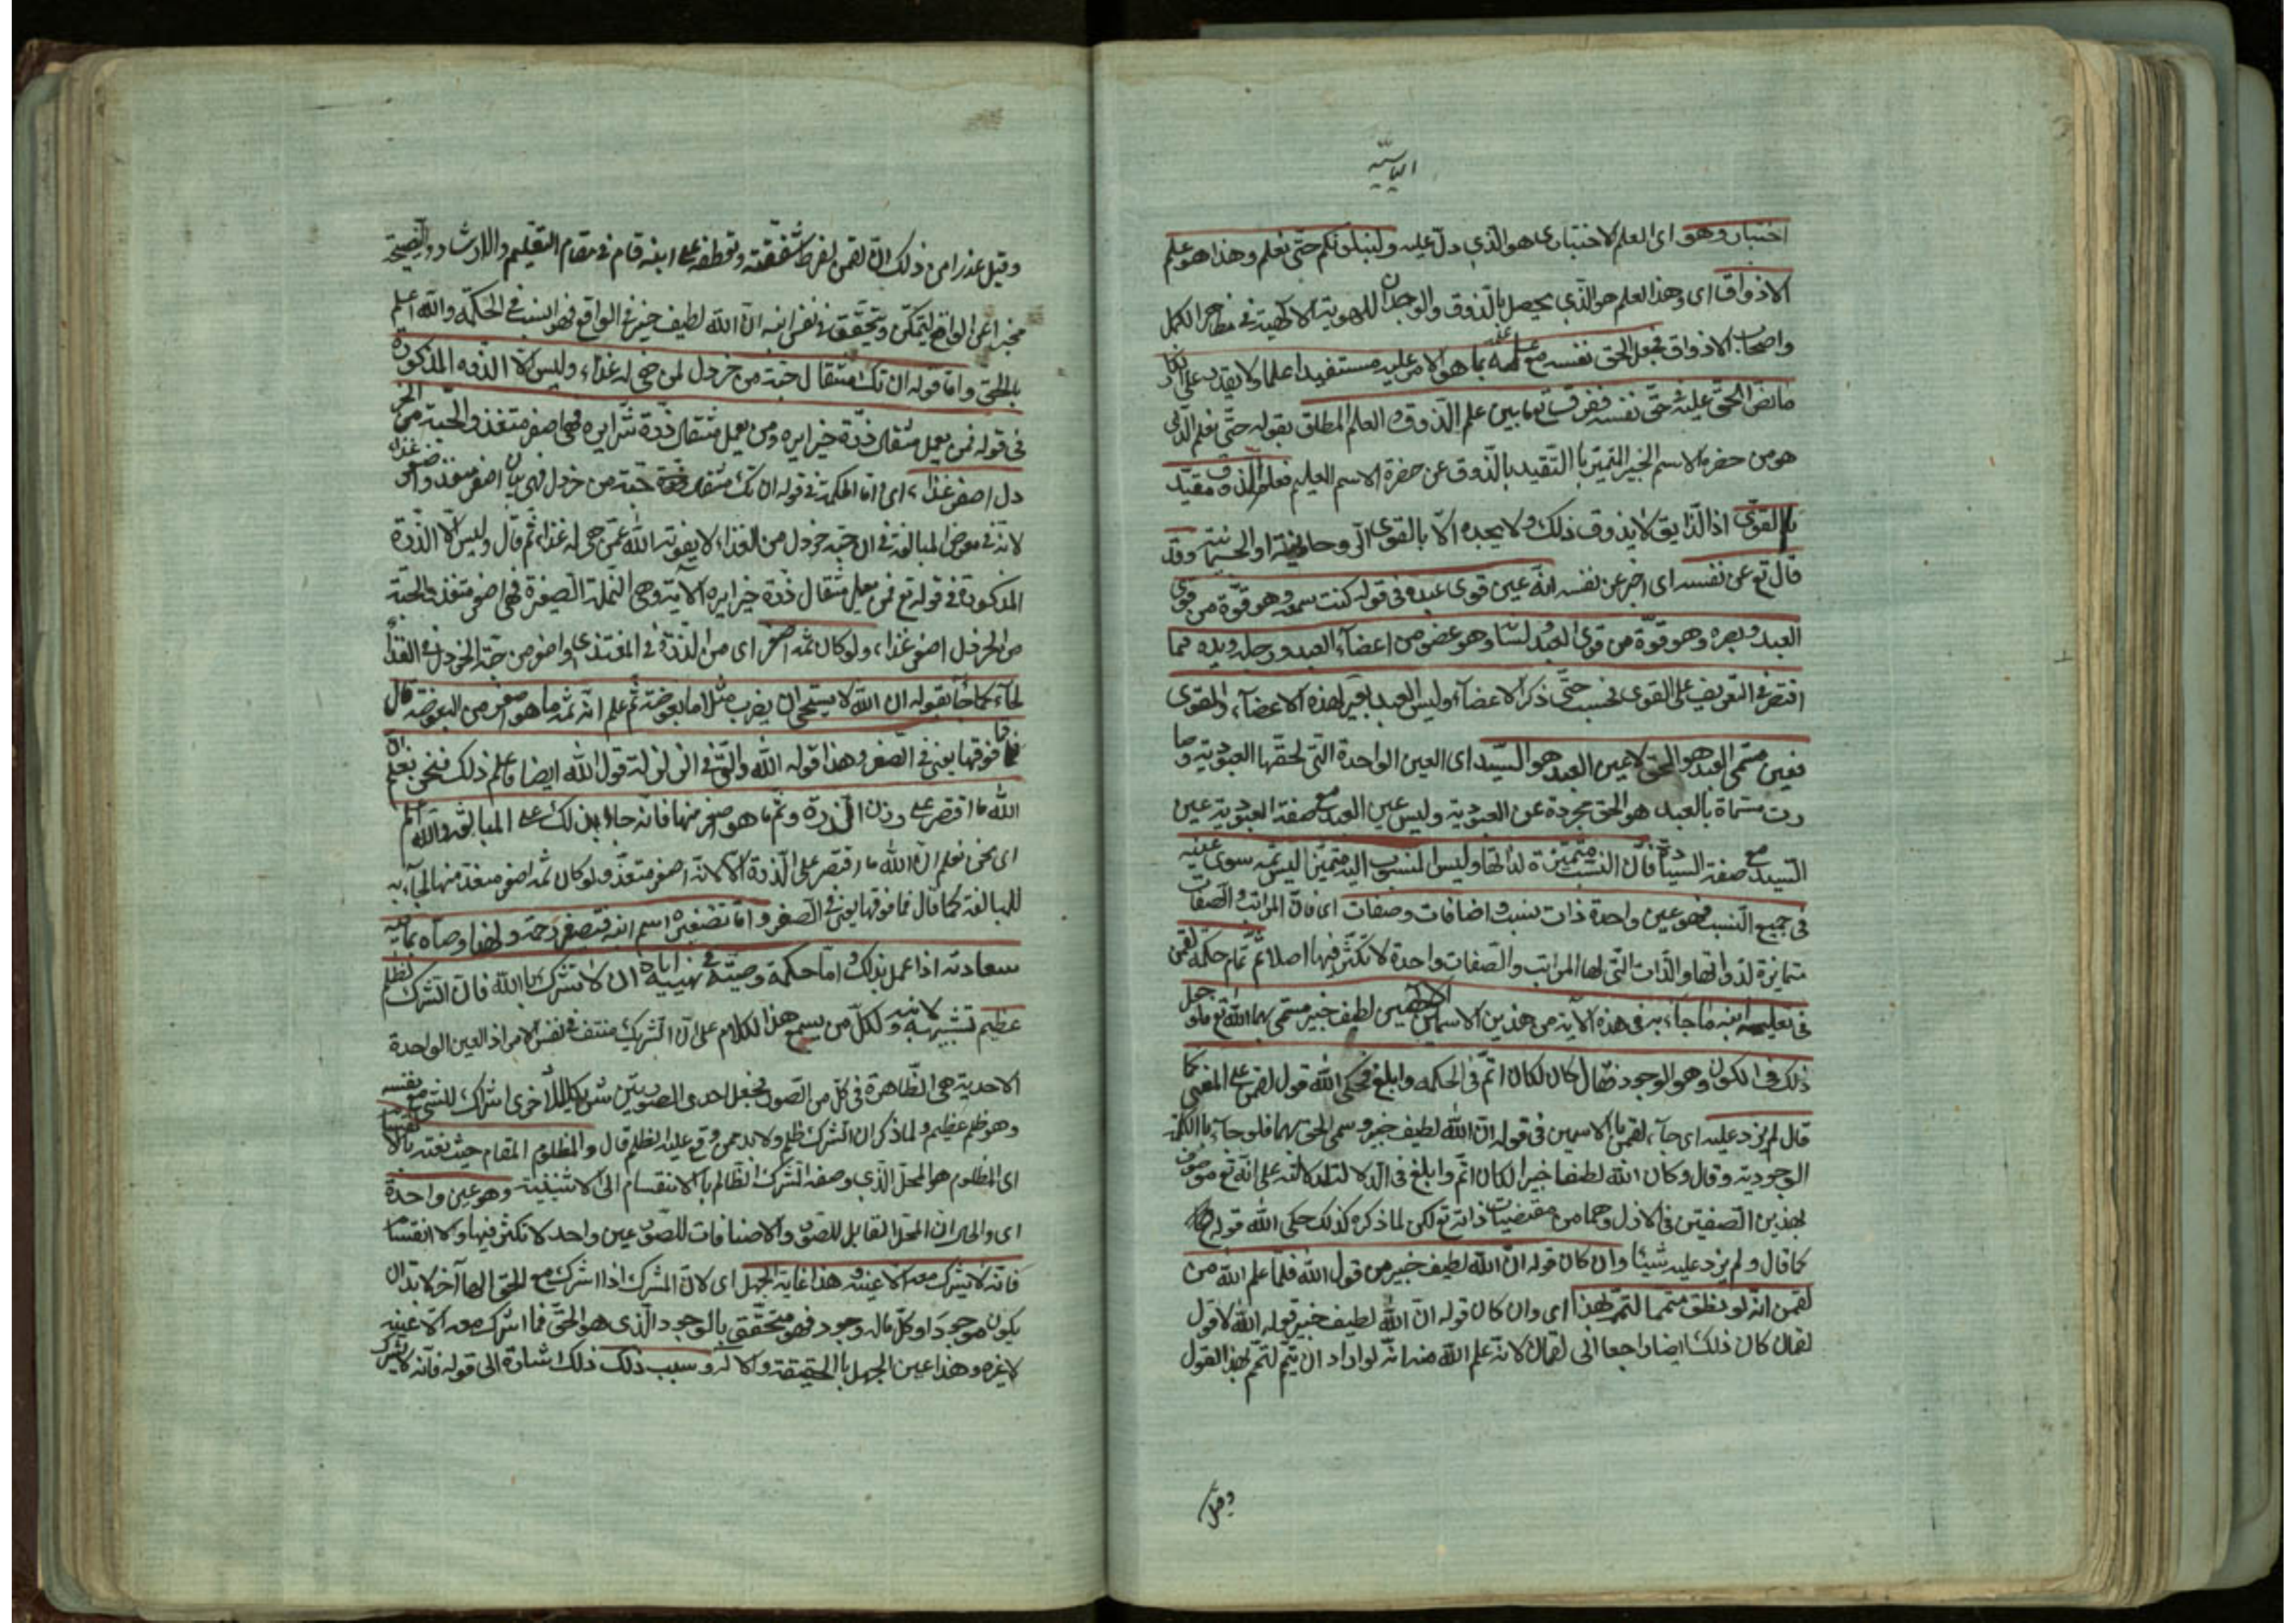 الياسية
اختبار وهو اى العلم الاختبارى هو الذى دل عليه ولنبلونكم حتى نعلم وهذا هو علم
الاذواق اى وهذا العلم هو الذى يحصل بالذوق والوجدان للهوية الالهية فى مظاهر الكمل
واصحاب الاذواق فجعل الحق نفسه مع علمه بما هو الامر عليه مستفيدا علما ولا يقدر على انكار
ما نص الحق عليه حتى نفسه ففرق تعا بين علم الذوق والعلم المطلق بقوله حتى نعلم الذى
هو من حضرة الاسم الخبير المتميز بالتقيد بالذوق عن حضرة الاسم العليم فعلم الذوق مقيد
بالقوى اذ الذايق لا يذوق ذلك ولا يجده الا بالقوى الروحانية او الجسمانية وقد
قال تع عن نفسه اى اخبر عن نفسه انه عين قوى عبده فى قوله كنت سمعه وهو قوة من قوى
العبد وبصره وهو قوة من قوى العبد ولسانا وهو عضو من اعضاء العبد ورجله ويده فما
اقتصر فى التعريف على القوى فحسب حتى ذكر الاعضاء وليس العبد بغير لهذه الاعضاء والقوى
فعين مسمى العبد هو الحق لا عين العبد هو السيد اى العين الواحدة التى لحقها العبودية وصا
رت مسماة بالعبد هو الحق مجردة عن العبودية وليس عين العبد مع صفة العبودية عين
السيد مع صفة السيادة فان النسب متميزة لذاتها وليس المنسوب اليه متميزا ليس ثمه سوى عينه
فى جميع النسب فهو عين واحدة ذات نسب واضافات وصفات اى فان المراتب والصفات
متمايزة لذواتها والذات التى لها المراتب والصفات واحدة لا تكثر فيها اصلا ثم تمام حكمة لقمن
فى تعليمه ابنه ما جاء به فى هذه الآية من هذين الاسمين الالهيين لطيف خبير مسمى بهما الله تع فلو جعل
ذلك فى الكون وهو الوجود فقال كان لكان اتم فى الحكمه وابلغ فحكى الله قول لقمن على المعنى كما
قال لم يزد عليه اى جاء لقمن بالاسمين فى قوله ان الله لطيف خبير وسمى الحق بهما فلو جاء بالكلمة
الوجودية وقال وكان الله لطيفا خبيرا لكان اتم وابلغ فى الدلالة لدلالته على انه تع موصوف
بهذين الصفتين فى الازل وهما من مقتضيات ذاته تع لكن لما ذكره كذلك حكى الله قوله
كما قال ولم يزد عليه شيئا وان كان قوله ان الله لطيف خبير من قول الله فلما علم الله من
لقمن انه لو نطق متمما لتمم لهذا اى وان كان قوله ان الله لطيف خبير قول الله لا قول
لقمان كان ذلك ايضا راجعا الى لقمان لانه علم الله منه انه لو اراد ان يتمم لتمم بهذا القول
وقيل
وقيل عذرا من ذلك ان لقمن لفرط شفقته وتعطفه على ابنه قام فى مقام التعليم والارشاد والنصيحة
مخبرا عن الواقع ليتمكن ويتحقق فى نفس ابنه ان الله لطيف خبير فى الواقع فهو انسب فى الحكمة والله اعلم
بالحق واما قوله ان تك مثقال حبة من خردل لمن هى له غذاء وليس الا الذره المذكورة
فى قوله فمن يعمل مثقال ذرة خيرا يره ومن يعمل مثقال ذرة شرا يره فهى اصغر متغذ والحبة من الخر
دل اصغر غذاء اى واما الحكمة فى قوله ان تك مثقال حبة من خردل فهى بيان اصغر متغذ واصغر غذاء
لانه فى معرض المبالغة فى ان حبة خردل من الغذاء لا يفوته الله عمن هى له غذاء ثم قال وليس الا الذرة
المذكورة فى قوله تع فمن يعمل مثقال ذرة خيرا يره الآية وهى النملة الصغيرة فهى اصغر متغذ والحبة
من الخردل اصغر غذاء ولو كان ثمه اصغر اى من الذرة فى المغتذى واصغر من حبة الخردل فى الغذاء
لجاء به كما جاء بقوله ان الله لا يستحى ان يضرب مثلا ما بعوضة ثم علم انه ثمه ما هو اصغر من البعوضة قال
فما فوقها يعنى فى الصغر وهذا قوله الله والتى فى الزلزلة قول الله ايضا فاعلم ذلك فنحن نعلم ان
الله ما اقتصر على وزن الذرة وثم ما هو اصغر منها فانه جاء بذلك على المبالغة والله اعلم
اى نحن نعلم ان الله ما اقتصر على الذرة الا لانه اصغر متغذ ولو كان ثمه اصغر متغذ منها لجاء به
للمبالغة كما قال فما فوقها يعنى فى الصغر واما تصغيره اسم ابنه فتصغير رحمة ولهذا وصاه بما فيه
سعادته اذا عمل بذلك واما حكمة وصيته فى نهييه اياه ان لا تشرك بالله فان الشرك لظلم
عظيم تنبيه لابنه ولكل من يسمع هذا الكلام على ان الشرك منتف فى نفس الامر اذ العين الواحدة
الاحدية هى الظاهرة فى كل من الصور فجعل احدى الصورتين شريكا للاخرى اشراك للشئ مع نفسه
وهو ظلم عظيم ولما ذكر ان الشرك ظلم ولا بد من وقع عليه الظلم قال والمظلوم المقام حيث نعته بالانقسام
اى المظلوم هو المحل الذى وصفه الشرك الظالم بالانقسام الى الاثنينية وهو عين واحدة
اى والحال ان المحل القابل للصور والاضافات للصور عين واحد لا تكثر فيها ولا انقسام
فانه لا يشرك معه الا عينه وهذا غاية الجهل اى لان المشرك اذا اشرك مع الحق الها آخر لا بد ان
يكون موجودا وكل ماله وجود فهو متحقق بالوجود الذى هو الحق فما اشرك معه الا عينه
لا غيره وهذا عين الجهل بالحقيقة والاله وسبب ذلك ذلك اشارة الى قوله فانه لا يشرك